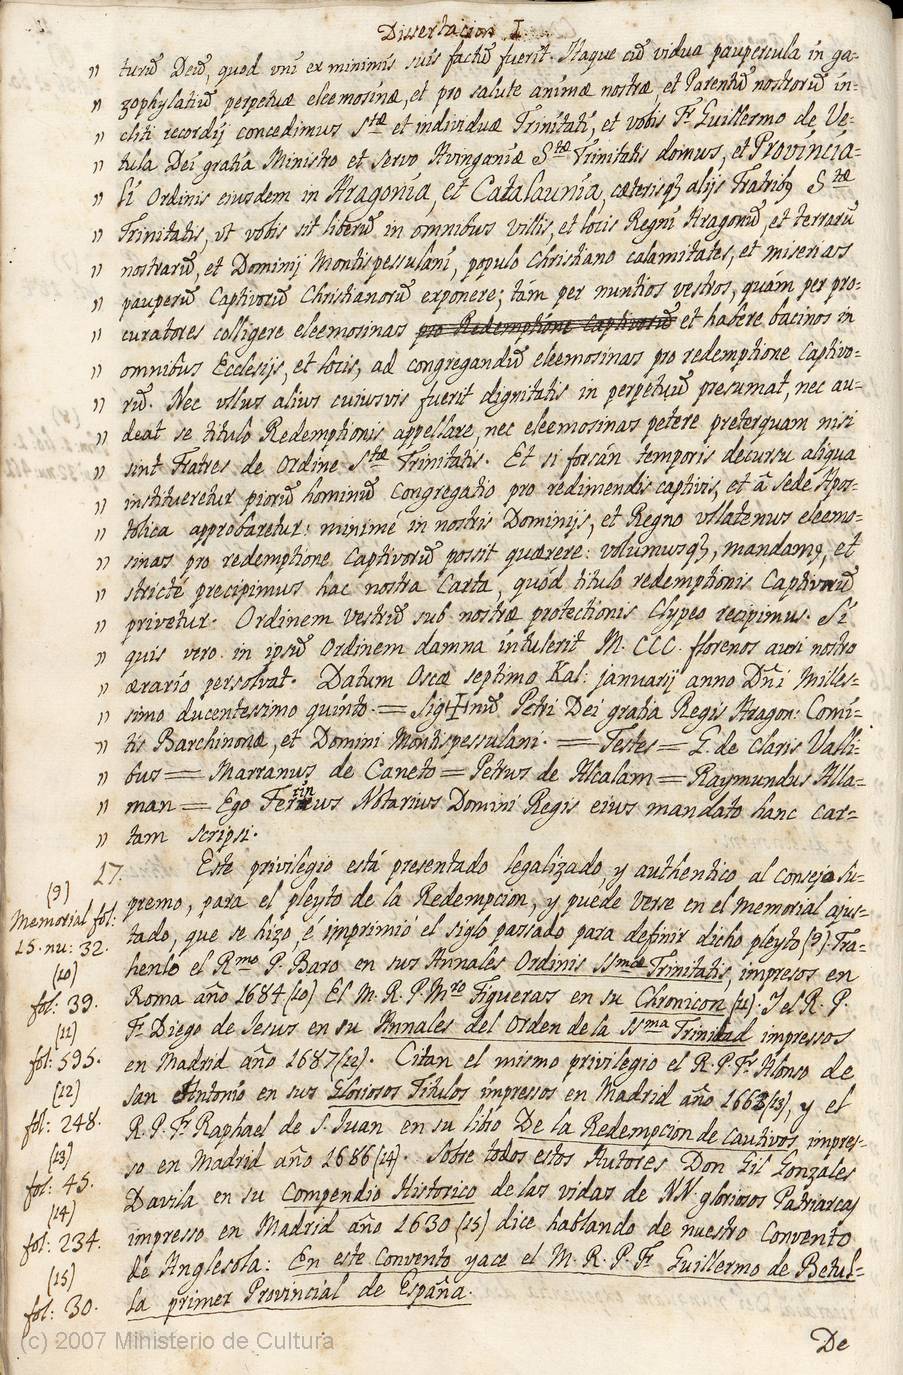 Dissertacion I.
" turũ Deũ, quod vni ex minimis suis factũ fuerit. Itaque cũ vidua paupercula in ga=
" zophylatiũ, perpetuæ eleemosinæ, et pro salute animæ nostræ, et Parentũ nostrorũ in=
" cliti recordij concedimus Stæ et individuæ Trinitati, et vobis Fr Guillermo de Ve=
" tula Dei gratia Ministro et servo Avinganiæ Stæ Trinitatis domus, et Provincia=
" li Ordinis eiusdem in Aragonia, et Catalaunia, cæterisqȝ alijs Fratribȝ Stæ
" Trinitatis, vt vobis sit liberũ in omnibus villis, et locis Regni Aragonũ, et terrarũ
" nostrarũ, et Dominij Montispessulani, populo Christiano calamitates, et miserias
" pauperũ Captivorũ Christianorũ exponere; tám per nuntios vestros, quám per pro=
" curatores colligere eleemosinas pro Redemptione Captivorũ et habere bacinos in
" omnibus Ecclesijs, et locis, ad congregandũ eleemosinas pro redemptione Captivo=
" rũ. Nec vllus alius cuiusvis fuerit dignitatis in perpetuũ presumat, nec au=
" deat se titulo Redemptionis appellare, nec eleemosinas petere preterquam nisi
" sint Fratres de Ordine Stæ Trinitatis. Et si forsán temporis decursu aliqua
" institueretur piorũ hominũ Congregatio pro redimendis captivis, et â Sede Apos=
" tolica approbaretur: minimé in nostris Dominijs, et Regno vllatenus eleemo=
" sinas pro redemptione Captivorũ possit quærere: volumusqȝ, mandamȝ, et
" stricté precipimus hac nostra Carta, quód titulo redemptionis Captivorũ
" privetur. Ordinem vestrũ sub nostræ protectionis Clypeo recipimus. Si
" quis vero in ipsũ Ordinem damna intulerit M. CCC. florenos auri nostro
" ærario persolvat. Datum Oscæ septimo Kal: januarij anno Dñi Milles=
" simo ducentessimo quinto. = Sig‡nũ Petri Dei gratia Regis Aragon: Comi=
" tis Barchinonæ, et Domini Montispessulani. = Testes = G. de Claris Valli=
" bus = Marranus de Caneto = Petrus de Alcalam = Raymundus Alla=
" man = Ego Ferrinus Notarius Domini Regis eius mandato hanc car=
" tam scripsi.
17. Este privilegio está presentado legalizado, y authentico al consejo Su=
premo, para el pleyto de la Redempcion, y puede verse en el memorial ajus=
tado, que se hizo, é imprimió el siglo passado para definir dicho pleyto (9). Tra=
henlo el Rmo P. Baro en sus Annales Ordinis SSmæ Trinitatis, impresos en
Roma año 1684 (10) El M. R. P. Mro Figueras en su Chronicon (11). Y el R. P.
Fr Diego de Jesus en su Annales del Orden de la SSma Trinidad impressos
en Madrid año 1687 (12). Citan el mismo privilegio el R. P. Fr Alonso de
San Antonio en sus Gloriosos Titulos impressos en Madrid año 1661 (13), y el
R. P. Fr Raphael de S. Juan en su libro De la Redempcion de cautivos, impres=
so en Madrid año 1686 (14). Sobre todos estos Autores Don Gil Gonzales
Davila en su Compendio Historico de las vidas de NN. gloriosos Patriarcas
impresso en Madrid año 1630 (15) dice hablando de nuestro Convento
de Anglesola: En este Convento yace el M. R. P. Fr Guillermo de Betul=
la primer Provincial de España.
De
(9)
Memorial fol:
15. nu: 32.
(10)
fol: 39.
(11)
fol: 595.
(12)
fol: 248.
(13)
fol: 45.
(14)
fol: 234.
(15)
fol: 30.
(c) 2007 Ministerio de Cultura